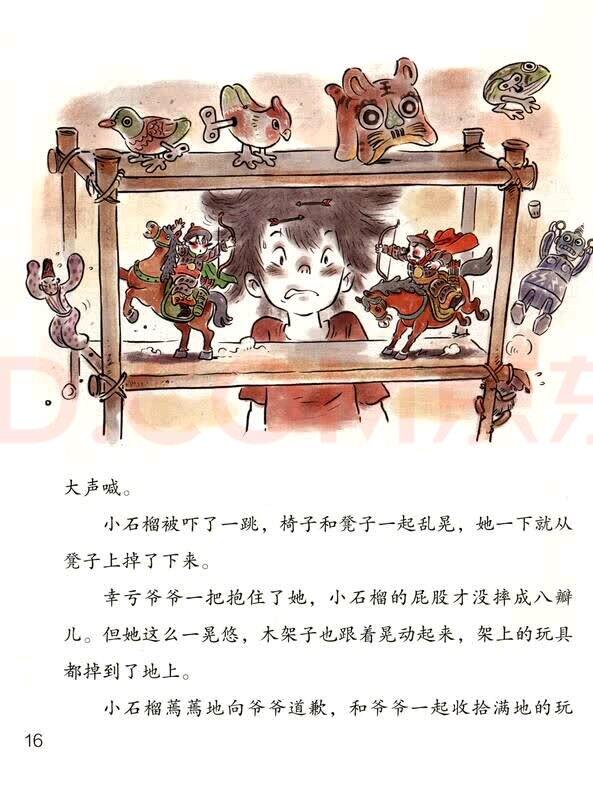 王
D.COM京东
大声喊。
小石榴被吓了一跳，椅子和凳子一起乱晃，她一下就从
凳子上掉了下来。
幸亏爷爷一把抱住了她，小石榴的屁股才没摔成八瓣
儿。但她这么一晃悠，木架子也跟着晃动起来，架上的玩具
都掉到了地上。
小石榴蔫蔫地向爷爷道歉，和爷爷一起收拾满地的玩
16